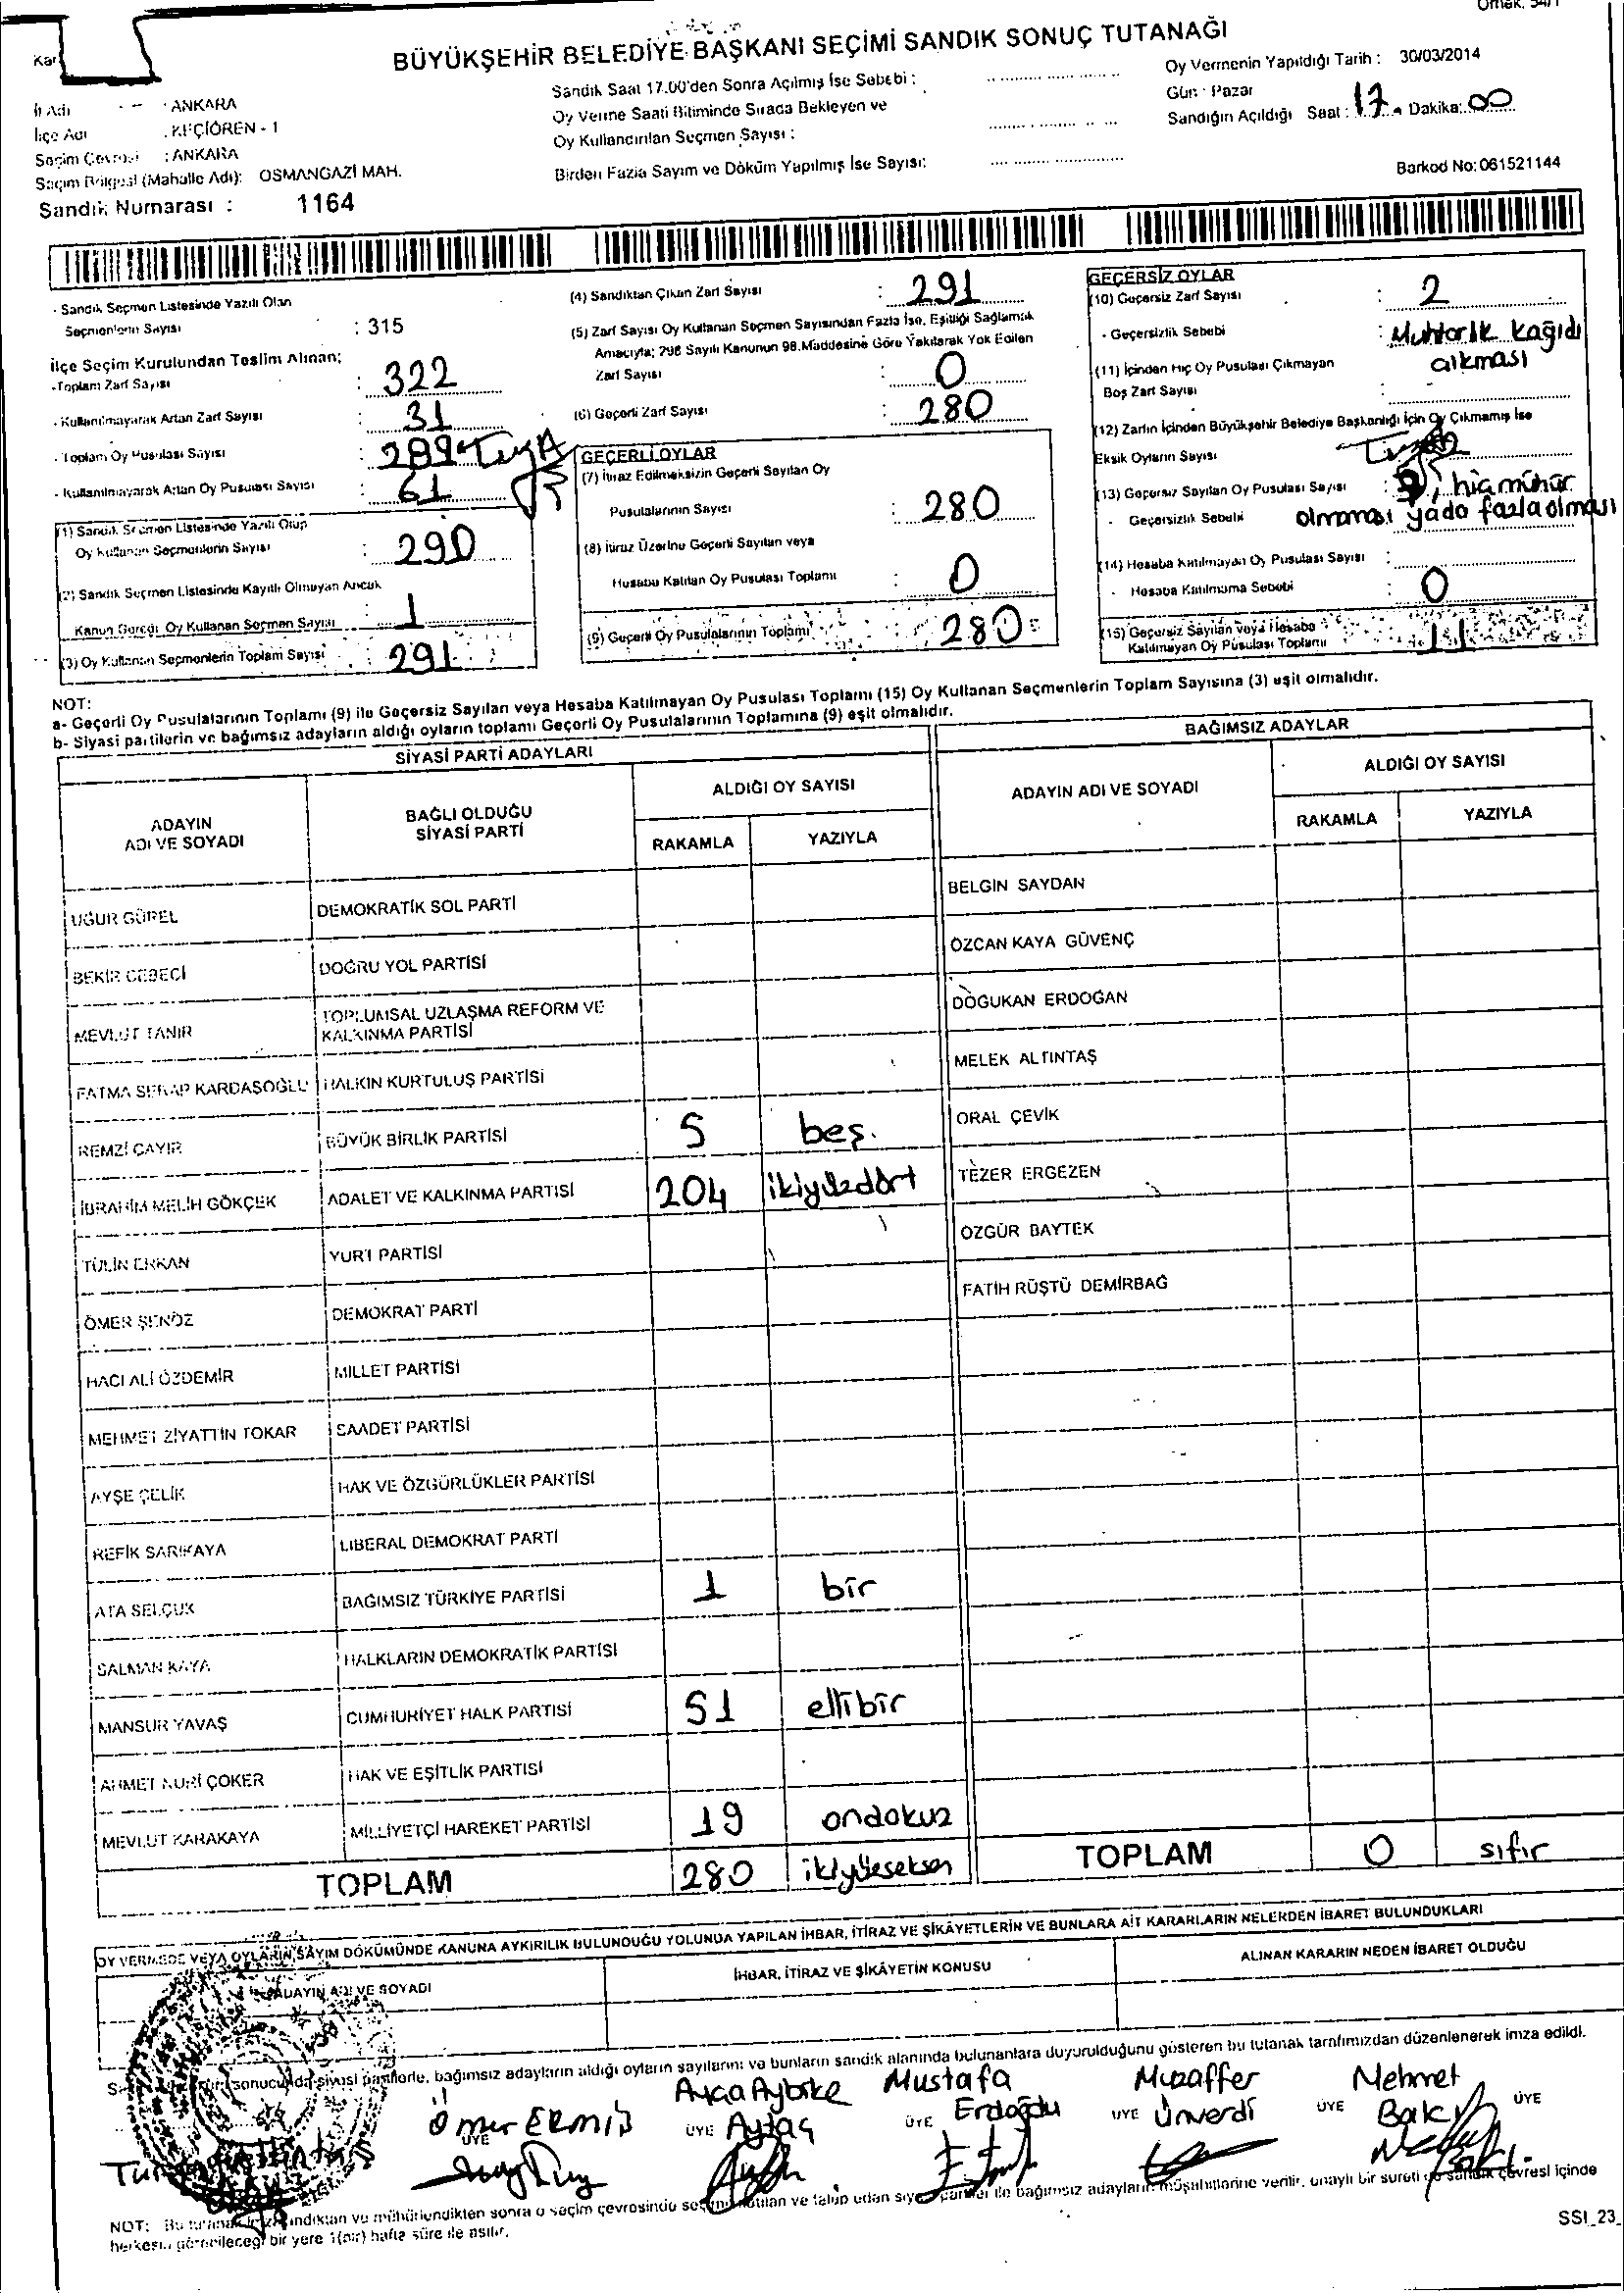 Örnek, 54/1
BÜYÜKŞEHİR BELEDİYE BAŞKANI SEÇİMİ SANDIK SONUÇ TUTANAĞI
Oy Vermenin Yapıldığı Tarih : 30/03/2014
Gün : Pazar
Sandığın Açıldığı Saat : 17 Dakika: 00
Barkod No: 061521144
Sandık Saat 17.00'den Sonra Açılmış İse Sebebi :
Oy Verme Saati Bitiminde Sırada Bekleyen ve
Oy Kullandırılan Seçmen Sayısı :
Birden Fazla Sayım ve Döküm Yapılmış İse Sayısı:
İl Adı : ANKARA
İlçe Adı : KEÇİÖREN - 1
Seçim Çevresi : ANKARA
Seçim Bölgesi (Mahalle Adı): OSMANGAZİ MAH.
Sandık Numarası : 1164
- Sandık Seçmen Listesinde Yazılı Olan
Seçmenlerin Sayısı : 315
İlçe Seçim Kurulundan Teslim Alınan;
- Toplam Zarf Sayısı : 322
- Kullanılmayarak Artan Zarf Sayısı : 31
- Toplam Oy Pusulası Sayısı :
- Kullanılmayarak Artan Oy Pusulası Sayısı : 61
(1) Sandık Seçmen Listesinde Yazılı Olup
Oy Kullanan Seçmenlerin Sayısı : 290
(2) Sandık Seçmen Listesinde Kayıtlı Olmayan Ancak
Kanun Gereği Oy Kullanan Seçmen Sayısı : 1
(3) Oy Kullanan Seçmenlerin Toplam Sayısı : 291
(4) Sandıktan Çıkan Zarf Sayısı : 291
(5) Zarf Sayısı Oy Kullanan Seçmen Sayısından Fazla İse, Eşitliği Sağlamak
Amacıyla; 298 Sayılı Kanunun 98.Maddesine Göre Yakılarak Yok Edilen
Zarf Sayısı : 0
(6) Geçerli Zarf Sayısı : 280
GEÇERLİ OYLAR
(7) İtiraz Edilmeksizin Geçerli Sayılan Oy
Pusulalarının Sayısı : 280
(8) İtiraz Üzerine Geçerli Sayılan veya
Hesaba Katılan Oy Pusulası Toplamı : 0
(9) Geçerli Oy Pusulalarının Toplamı : 280
GEÇERSİZ OYLAR
(10) Geçersiz Zarf Sayısı : 2
- Geçersizlik Sebebi : Muhtarlık kağıdı
çıkması
(11) İçinden Hiç Oy Pusulası Çıkmayan
Boş Zarf Sayısı :
(12) Zarfın İçinden Büyükşehir Belediye Başkanlığı İçin Oy Çıkmamış İse
Eksik Oyların Sayısı
(13) Geçersiz Sayılan Oy Pusulası Sayısı : 9, hiç mühür
- Geçersizlik Sebebi olmaması yada fazla olması
(14) Hesaba Katılmayan Oy Pusulası Sayısı :
- Hesaba Katılmama Sebebi : 0
(15) Geçersiz Sayılan veya Hesaba
Katılmayan Oy Pusulası Toplamı : 11
NOT:
a- Geçerli Oy Pusulalarının Toplamı (9) ile Geçersiz Sayılan veya Hesaba Katılmayan Oy Pusulası Toplamı (15) Oy Kullanan Seçmenlerin Toplam Sayısına (3) eşit olmalıdır.
b- Siyasi partilerin ve bağımsız adayların aldığı oyların toplamı Geçerli Oy Pusulalarının Toplamına (9) eşit olmalıdır.
SİYASİ PARTİ ADAYLARI
ADAYIN ADI VE SOYADI BAĞLI OLDUĞU SİYASİ PARTİ ALDIĞI OY SAYISI
RAKAMLA YAZIYLA
UĞUR GÜREL DEMOKRATİK SOL PARTİ
BEKİR CEBECİ DOĞRU YOL PARTİSİ
MEVLÜT TANIR TOPLUMSAL UZLAŞMA REFORM VE KALKINMA PARTİSİ
FATMA SERAP KARDAŞOĞLU HALKIN KURTULUŞ PARTİSİ
REMZİ ÇAYIR BÜYÜK BİRLİK PARTİSİ 5 beş.
İBRAHİM MELİH GÖKÇEK ADALET VE KALKINMA PARTİSİ 204 ikiyüzdört
TÜLİN ERKAN YURT PARTİSİ
ÖMER ŞENÖZ DEMOKRAT PARTİ
HACI ALİ ÖZDEMİR MİLLET PARTİSİ
MEHMET ZİYATTİN TOKAR SAADET PARTİSİ
AYŞE ÇELİK HAK VE ÖZGÜRLÜKLER PARTİSİ
REFİK SARIKAYA LİBERAL DEMOKRAT PARTİ
ATA SELÇUK BAĞIMSIZ TÜRKİYE PARTİSİ 1 bir
SALMAN KAYA HALKLARIN DEMOKRATİK PARTİSİ
MANSUR YAVAŞ CUMHURİYET HALK PARTİSİ 51 ellibir
AHMET NURİ ÇOKER HAK VE EŞİTLİK PARTİSİ
MEVLÜT KARAKAYA MİLLİYETÇİ HAREKET PARTİSİ 19 ondokuz
TOPLAM 280 ikiyüzseksen
BAĞIMSIZ ADAYLAR
ADAYIN ADI VE SOYADI ALDIĞI OY SAYISI
RAKAMLA YAZIYLA
BELGİN SAYDAN
ÖZCAN KAYA GÜVENÇ
DOĞUKAN ERDOĞAN
MELEK ALTINTAŞ
ORAL ÇEVİK
TEZER ERGEZEN
ÖZGÜR BAYTEK
FATİH RÜŞTÜ DEMİRBAĞ
TOPLAM 0 sıfır
OY VERMEDE VEYA OYLARIN SAYIM DÖKÜMÜNDE KANUNA AYKIRILIK BULUNDUĞU YOLUNDA YAPILAN İHBAR, İTİRAZ VE ŞİKÂYETLERİN VE BUNLARA AİT KARARLARIN NELERDEN İBARET BULUNDUKLARI
ADAYIN ADI VE SOYADI İHBAR, İTİRAZ VE ŞİKÂYETİN KONUSU ALINAN KARARIN NEDEN İBARET OLDUĞU
sonucunda siyasi partilerle, bağımsız adayların aldığı oyların sayılarını ve bunların sandık alanında bulunanlara duyurulduğunu gösteren bu tutanak tarafımızdan düzenlenerek imza edildi.
Ömer Ermiş ÜYE
Ayça Aybike Aytaç ÜYE
Mustafa Erdoğdu ÜYE
Muzaffer Ünverdi ÜYE
Mehmet Bakı ÜYE
ÜYE
NOT: Bu tutanak imzalandıktan ve mühürlendikten sonra o seçim çevresinde seçime katılan ve talep eden siyasi partiler ile bağımsız adayların müşahitlerine verilir, onaylı bir sureti de sandık çevresi içinde
herkesin görebileceği bir yere 1(bir) hafta süre ile asılır.
SSI_23_